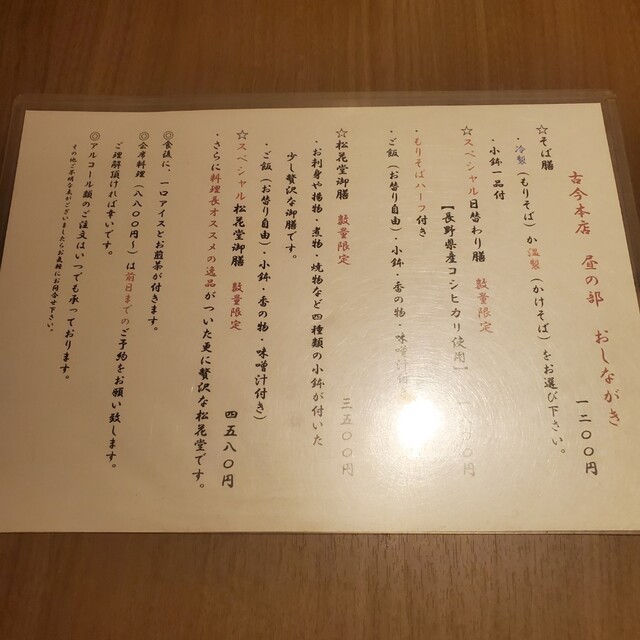 古今本店 昼の部 おしながき
☆そば膳 一二〇〇円
・冷製（もりそば）か温製（かけそば）をお選び下さい。
・小鉢一品付
☆スペシャル日替わり膳 数量限定
【長野県産コシヒカリ使用】
・もりそばハーフ付き
・ご飯（お替り自由）・小鉢・香の物・味噌汁付き
☆松花堂御膳 数量限定 三五〇〇円
・お刺身や揚物・煮物・焼物など四種類の小鉢が付いた
少し贅沢な御膳です。
・ご飯（お替り自由）・小鉢・香の物・味噌汁付き）
☆スペシャル松花堂御膳 数量限定 四五八〇円
・さらに料理長オススメの逸品がついた更に贅沢な松花堂です。
◎食後に、一口アイスとお煎茶が付きます。
◎会席料理（八八〇〇円～）は前日までのご予約をお願い致します。
ご理解頂ければ幸いです。
◎アルコール類のご注文はいつでも承っております。
その他ご不明な点がございましたらお気軽にお問合せ下さい。